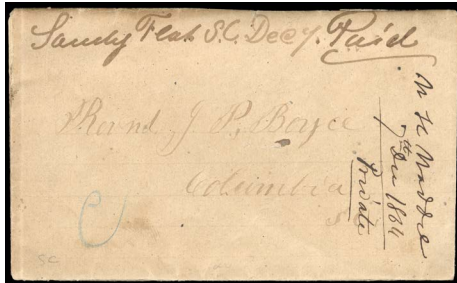 Sandy Flat S.C. Dec 7. Paid
Revnd J. P. Boyce
Columbia
S C
7th Dec 1864
Private
SC